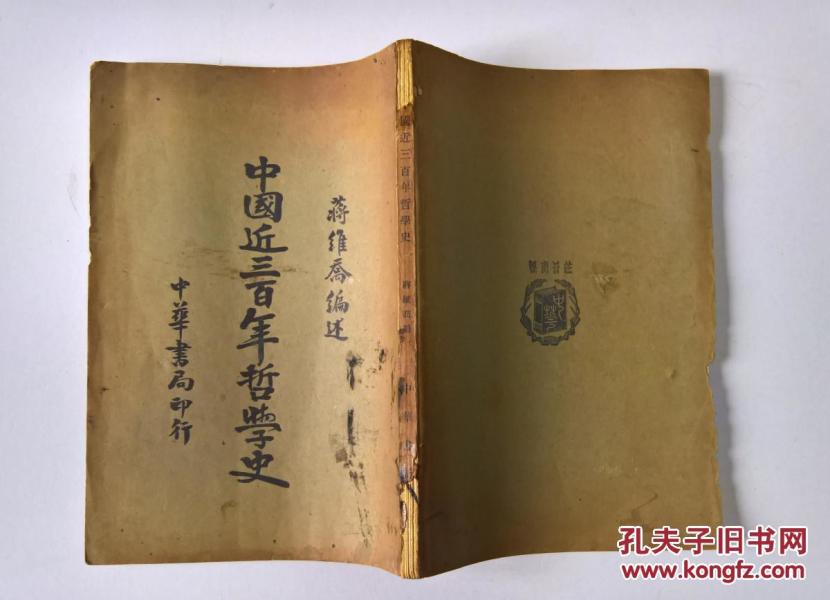 蔣維喬編述
中國近三百年哲學史
中華書局印行
國近三百年哲學史
蔣維喬
中華書
註冊商標
中華
孔夫子旧书网
www.kongfz.com